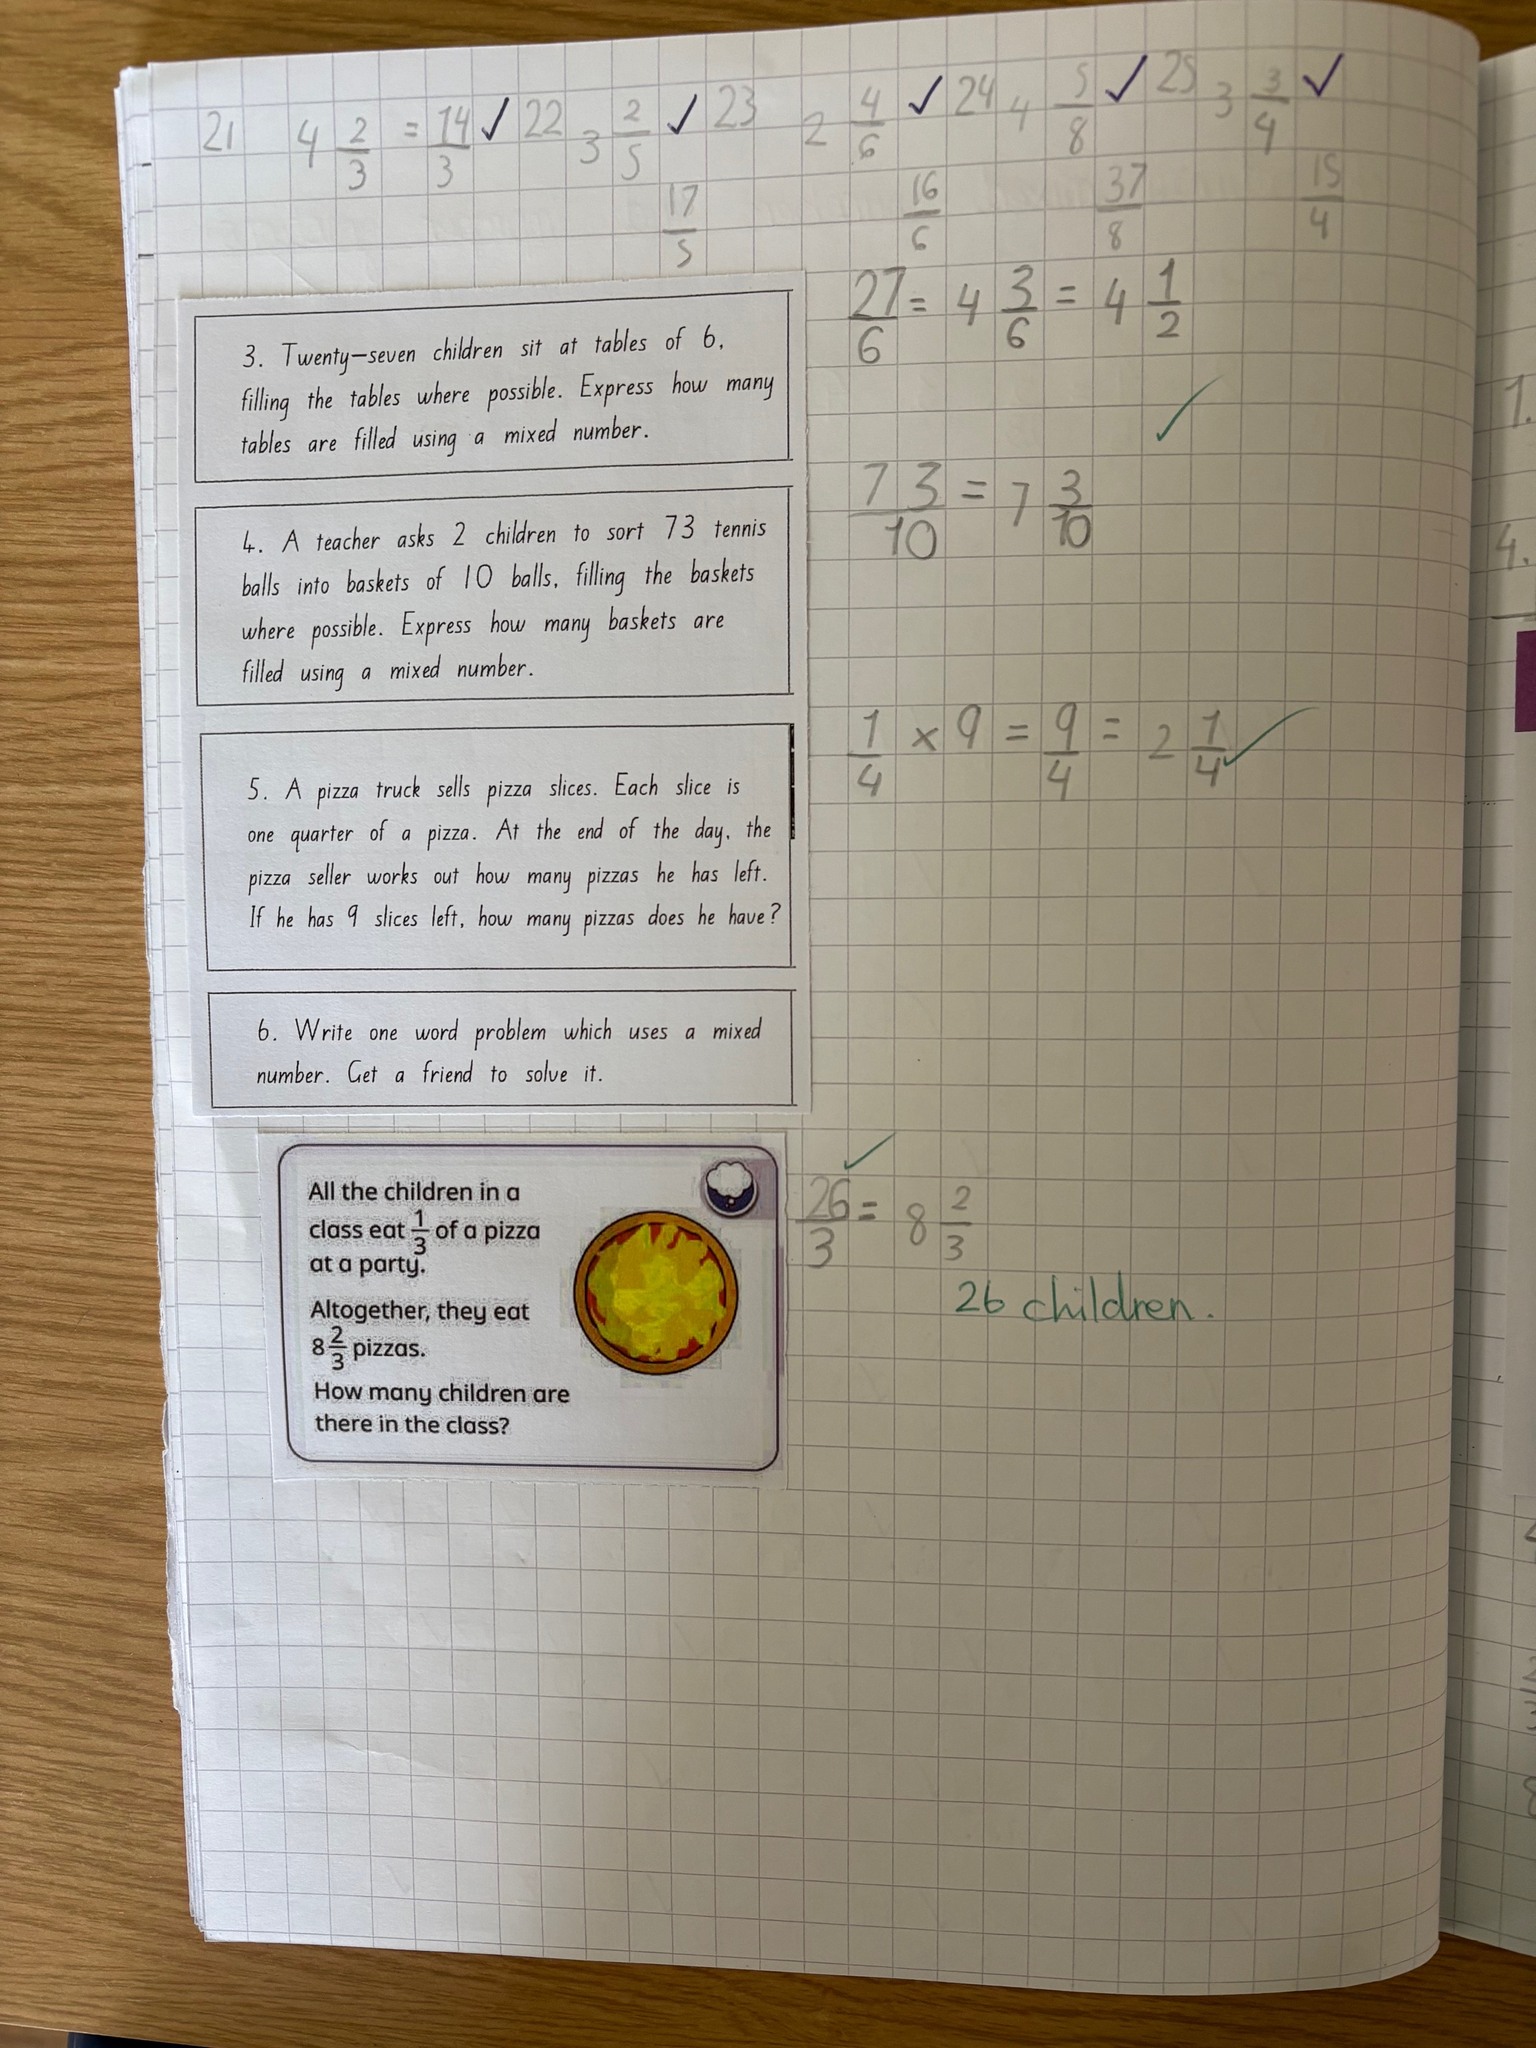 21 4 2/3 = 14/3 ✓ 22 3 2/5 ✓ 23 2 4/6 ✓ 24 4 5/8 ✓ 25 3 3/4 ✓
17/5 16/6 37/8 15/4
3. Twenty-seven children sit at tables of 6,
filling the tables where possible. Express how many
tables are filled using a mixed number.
27/6 = 4 3/6 = 4 1/2
✓
4. A teacher asks 2 children to sort 73 tennis
balls into baskets of 10 balls, filling the baskets
where possible. Express how many baskets are
filled using a mixed number.
73/10 = 7 3/10
5. A pizza truck sells pizza slices. Each slice is
one quarter of a pizza. At the end of the day, the
pizza seller works out how many pizzas he has left.
If he has 9 slices left, how many pizzas does he have?
1/4 × 9 = 9/4 = 2 1/4 ✓
6. Write one word problem which uses a mixed
number. Get a friend to solve it.
All the children in a
class eat 1/3 of a pizza
at a party.
Altogether, they eat
8 2/3 pizzas.
How many children are
there in the class?
✓
26/3 = 8 2/3
26 children.
1.
4.